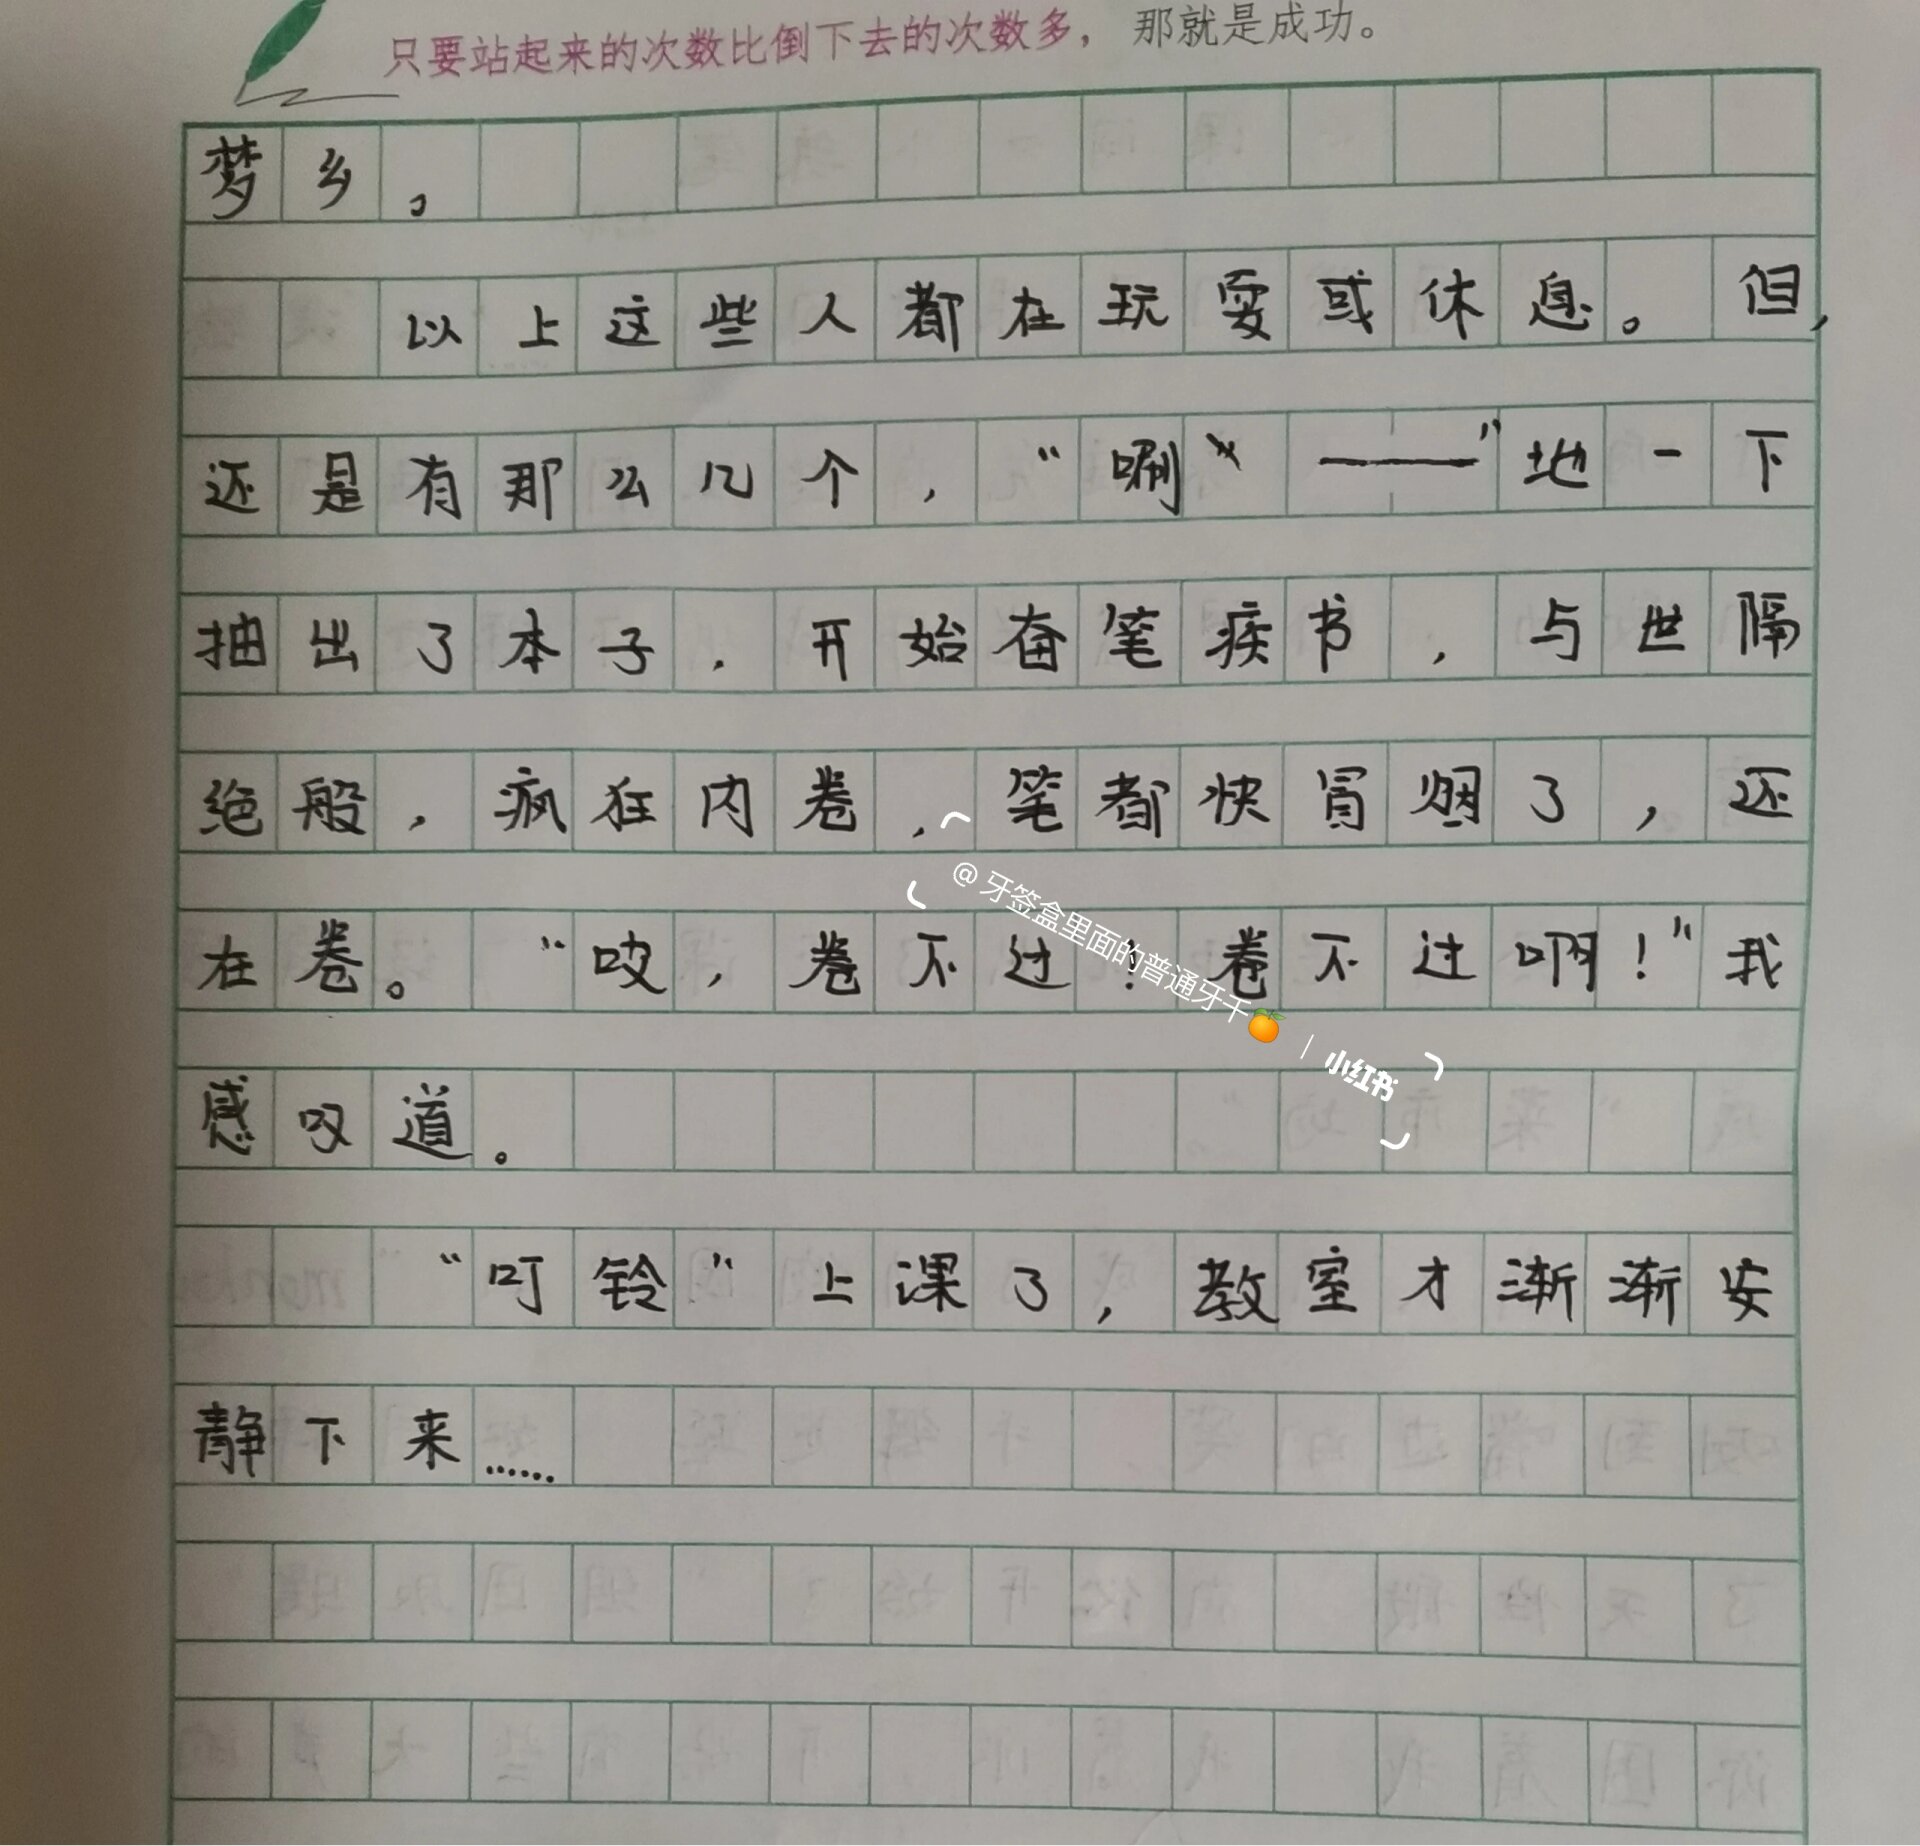 只要站起来的次数比倒下去的次数多，那就是成功。
梦乡。
以上这些人都在玩耍或休息。但，
还是有那么几个，“唰——”地一下
抽出了本子，开始奋笔疾书，与世隔
绝般，疯狂内卷，笔都快冒烟了，还
在卷。“哎，卷不过！卷不过啊！”我
感叹道。
“叮铃”上课了，教室才渐渐安
静下来……
@牙签盒里面的普通牙千🍊｜小红书